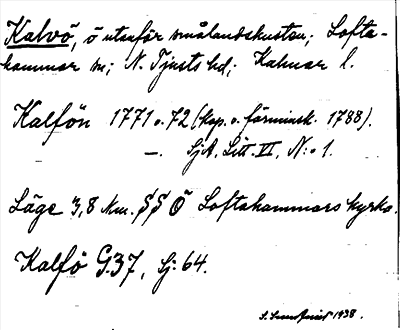 Kalvö, ö utanför smålandskusten; Lofta-
hammar sn; N. Tjusts hd; Kalmar l.
Kalfön 1771 o. 72 (kop. o. förminsk. 1788).
—. SjA. Litt. VI, N:o 1.
Läge 3,8 km. SSÖ Loftahammars kyrka.
Kalfö G.37, Sj. 64.
S. 1938.